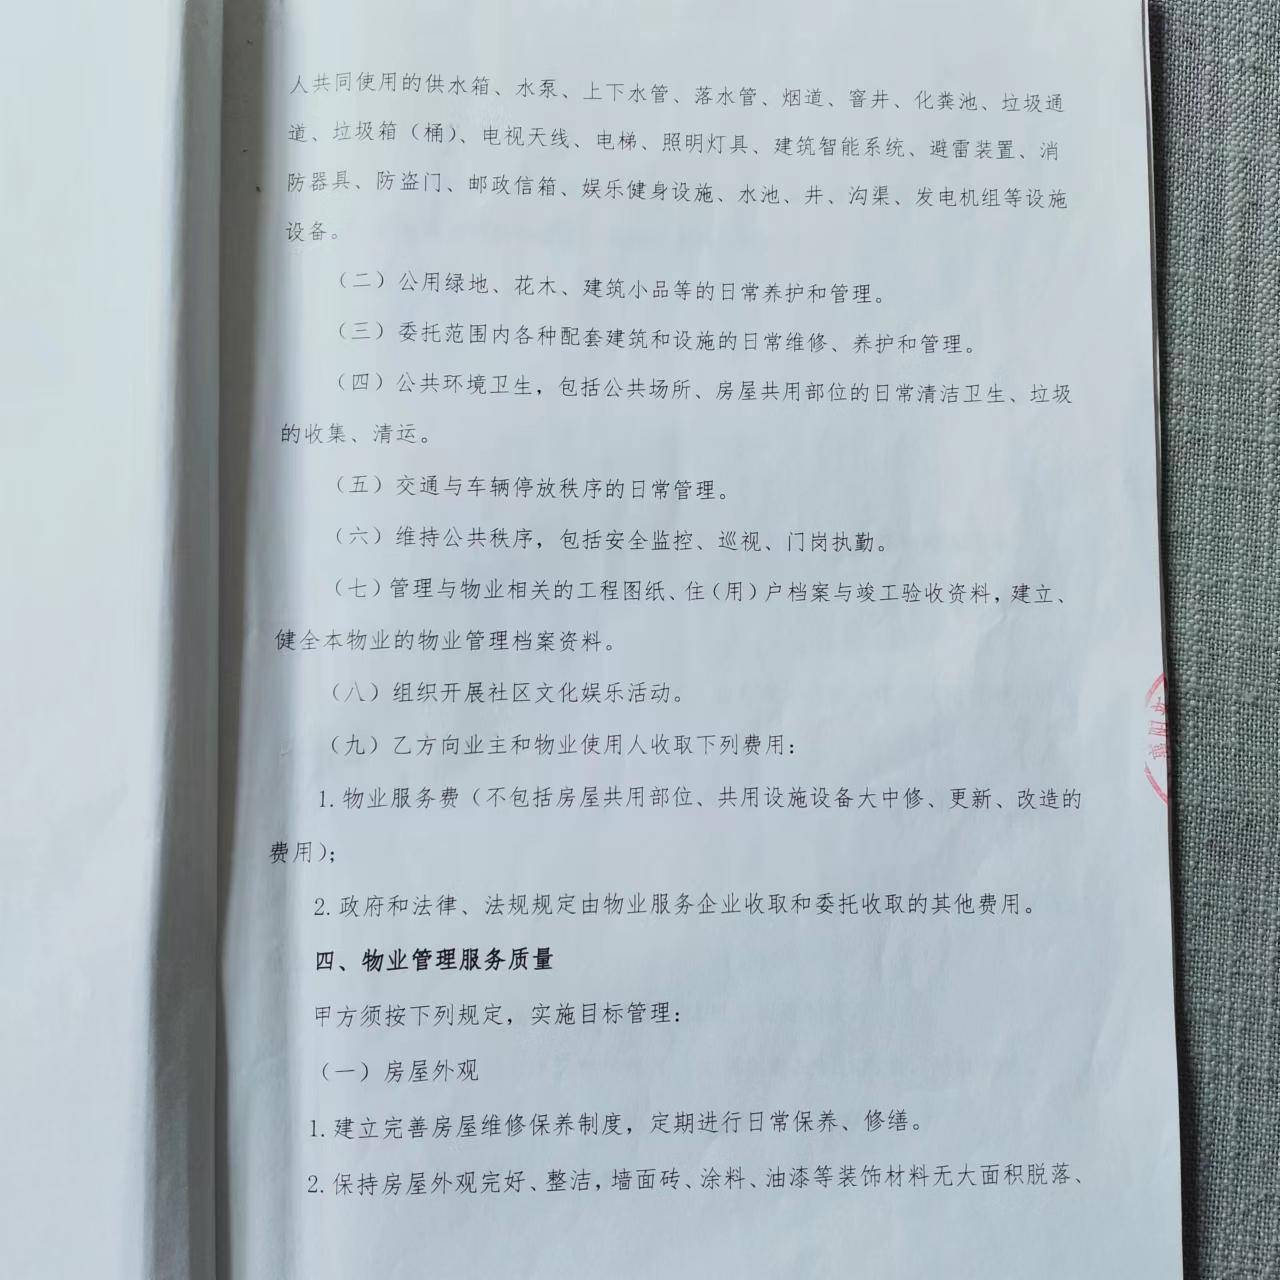 人共同使用的供水箱、水泵、上下水管、落水管、烟道、窨井、化粪池、垃圾通
道、垃圾箱（桶）、电视天线、电梯、照明灯具、建筑智能系统、避雷装置、消
防器具、防盗门、邮政信箱、娱乐健身设施、水池、井、沟渠、发电机组等设施
设备。
（二）公用绿地、花木、建筑小品等的日常养护和管理。
（三）委托范围内各种配套建筑和设施的日常维修、养护和管理。
（四）公共环境卫生，包括公共场所、房屋共用部位的日常清洁卫生、垃圾
的收集、清运。
（五）交通与车辆停放秩序的日常管理。
（六）维持公共秩序，包括安全监控、巡视、门岗执勤。
（七）管理与物业相关的工程图纸、住（用）户档案与竣工验收资料，建立、
健全本物业的物业管理档案资料。
（八）组织开展社区文化娱乐活动。
（九）乙方向业主和物业使用人收取下列费用：
1.物业服务费（不包括房屋共用部位、共用设施设备大中修、更新、改造的
费用）；
2.政府和法律、法规规定由物业服务企业收取和委托收取的其他费用。
四、物业管理服务质量
甲方须按下列规定，实施目标管理：
（一）房屋外观
1.建立完善房屋维修保养制度，定期进行日常保养、修缮。
2.保持房屋外观完好、整洁，墙面砖、涂料、油漆等装饰材料无大面积脱落、